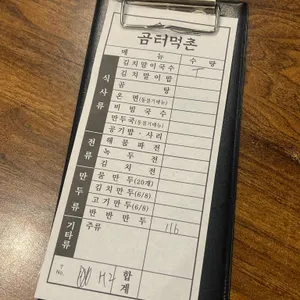 곰터먹촌
메 뉴 수 당
식사류 김치말이국수
김치말이밥
곰 탕
온 면(동절기메뉴)
비빔국수
만두국(동절기메뉴)
공기밥·사리
전류 해물파전
녹두전
김치전
만두류 물만두(20개)
김치만두(6/8)
고기만두(6/8)
반반만두
기타류 주류 116
No. 합계